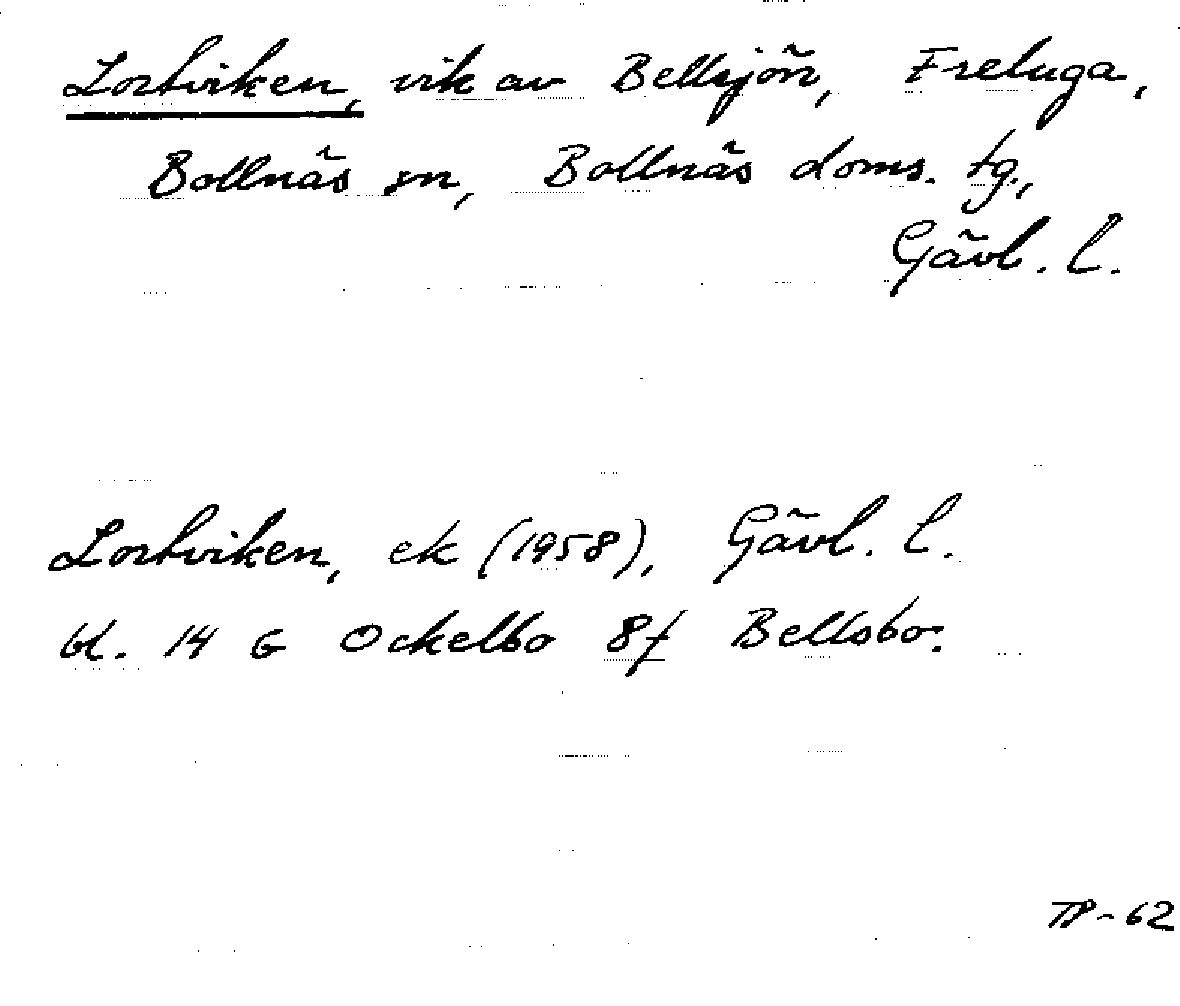 Lortviken, vik av Bellsjön, Freluga,
Bollnäs sn, Bollnäs doms. tg.,
Gävl. l.
Lortviken, ek (1958), Gävl. l.
bl. 14 G Ockelbo 8f Bellsbo.
TP-62